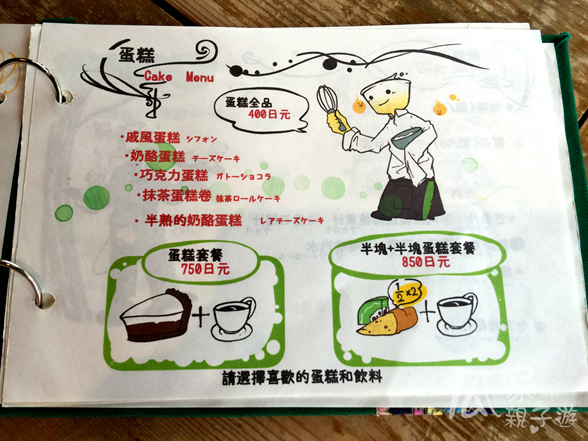 蛋糕
Cake Menu
蛋糕全品
400日元
・戚風蛋糕 シフォン
・奶酪蛋糕 チーズケーキ
・巧克力蛋糕 ガトーショコラ
・抹茶蛋糕卷 抹茶ロールケーキ
・半熟的奶酪蛋糕 レアチーズケーキ
蛋糕套餐
750日元
半塊+半塊蛋糕套餐
850日元
1/2×2
+
+
請選擇喜歡的蛋糕和飲料
親子遊